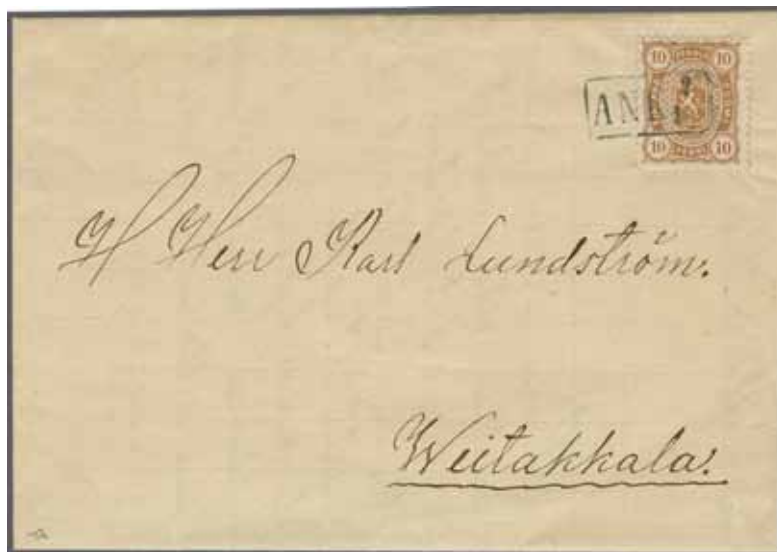 10 10
ANK
10 10
H Herr Karl Lundström.
Weitakkala.